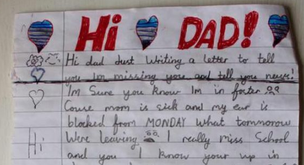 Hi DAD!
Hi dad Just Writing a letter to tell
you Im missing you and tell you news.
Im Sure you know Im in foster
Cause mom is sick and my ear is
blocked from MONDAY What tommorow
Hi Were leaving I really miss School
and you I know your up in